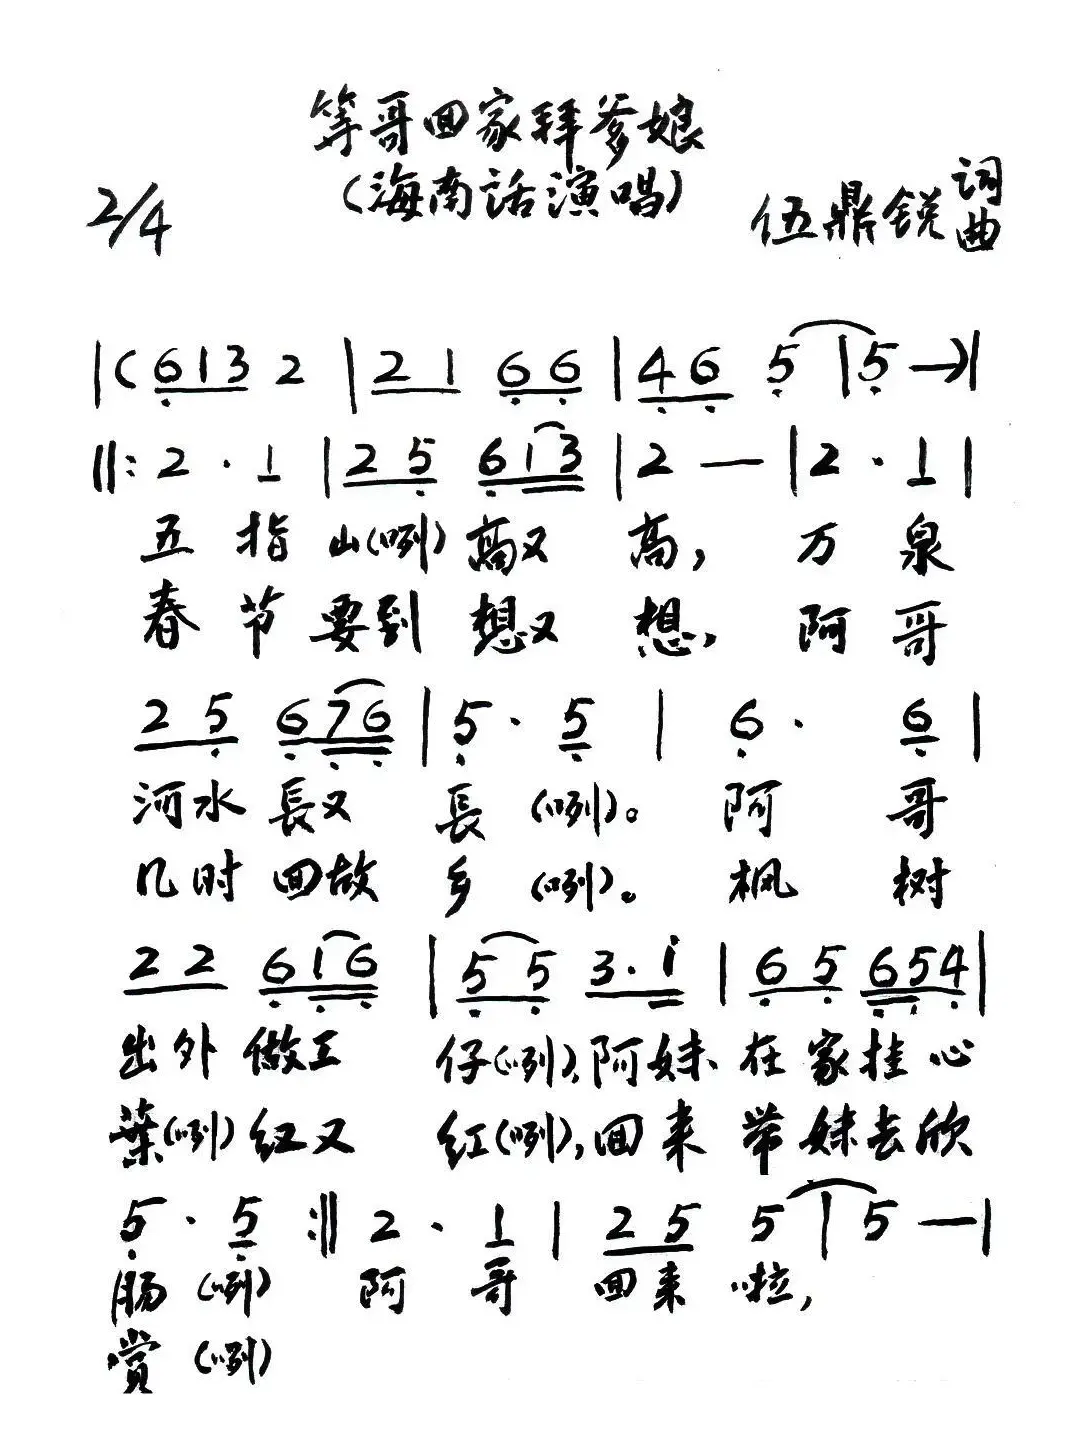 等哥回家拜爹娘
(海南话演唱)
2/4
伍鼎锐 词曲
|(6 1 3 2 | 2 1 6 6 | 4 6 5 | 5 —)|
‖: 2 · 1 | 2 5 6 1 3 | 2 — | 2 · 1 |
五 指 山(咧)高又 高, 万 泉
春 节 要到 想又 想, 阿 哥
2 5 6 7 6 | 5 · 5 | 6 · 6 |
河水 長又 長 (咧)。 阿 哥
几时 回故 乡 (咧)。 枫 树
2 2 6 1 6 | 5 5 3 · 1 | 6 5 6 5 4 |
出外 做工 仔(咧),阿妹 在家挂心
葉(咧)红又 红(咧),回来 带妹去欣
5 · 5 :‖ 2 · 1 | 2 5 5 | 5 — |
肠 (咧) 阿 哥 回来 啦,
赏 (咧)